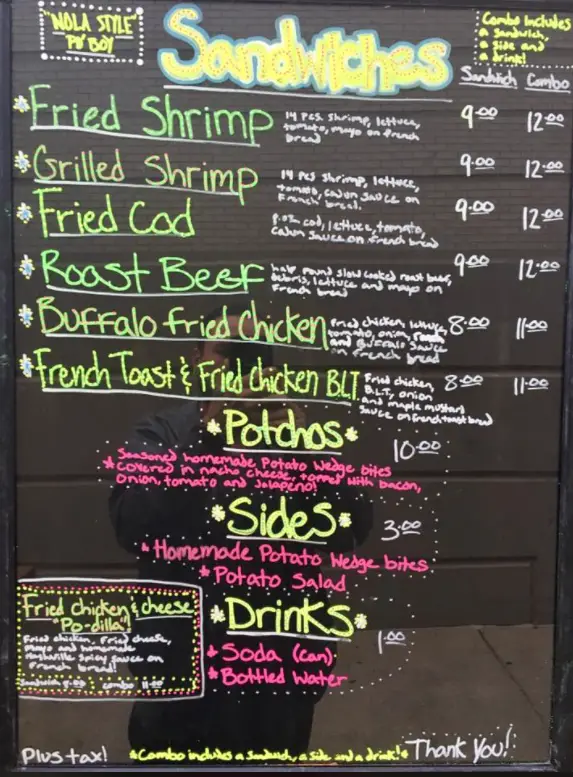 "NOLA STYLE"
PO' BOY
Sandwiches
Combo Includes
a sandwich,
a side and
a drink!
Sandwich Combo
Fried Shrimp
14 pcs. shrimp, lettuce,
tomato, mayo on french
bread
9.00 12.00
Grilled Shrimp
14 pcs shrimp, lettuce,
tomato, cajun sauce on
French bread.
9.00 12.00
Fried Cod
8.oz. cod, lettuce, tomato,
Cajun sauce on French bread
9.00 12.00
Roast Beef
half pound slow cooked roast beef,
debris, lettuce and mayo on
French bread
9.00 12.00
Buffalo fried Chicken
fried chicken, lettuce,
tomato, onion, ranch
and Buffalo Sauce
on French bread
8.00 11.00
French Toast & Fried Chicken B.L.T.
Fried chicken,
B.L.T, onion
and maple mustard
sauce on french toast bread
8.00 11.00
*Potchos*
10.00
*Seasoned homemade Potato Wedge bites
covered in nacho cheese, topped with bacon,
onion, tomato and Jalapeño!
*Sides*
3.00
*Homemade Potato Wedge bites
*Potato Salad
*Drinks*
1.00
*Soda (can)
*Bottled Water
Fried chicken & cheese
"Po-dilla"
Fried chicken, Fried cheese,
Mayo and homemade
Nashville spicy sauce on
French bread!
Sandwich 8.00 : combo 11.00
Plus tax!
*Combo includes a sandwich, a side and a drink!*
Thank You!